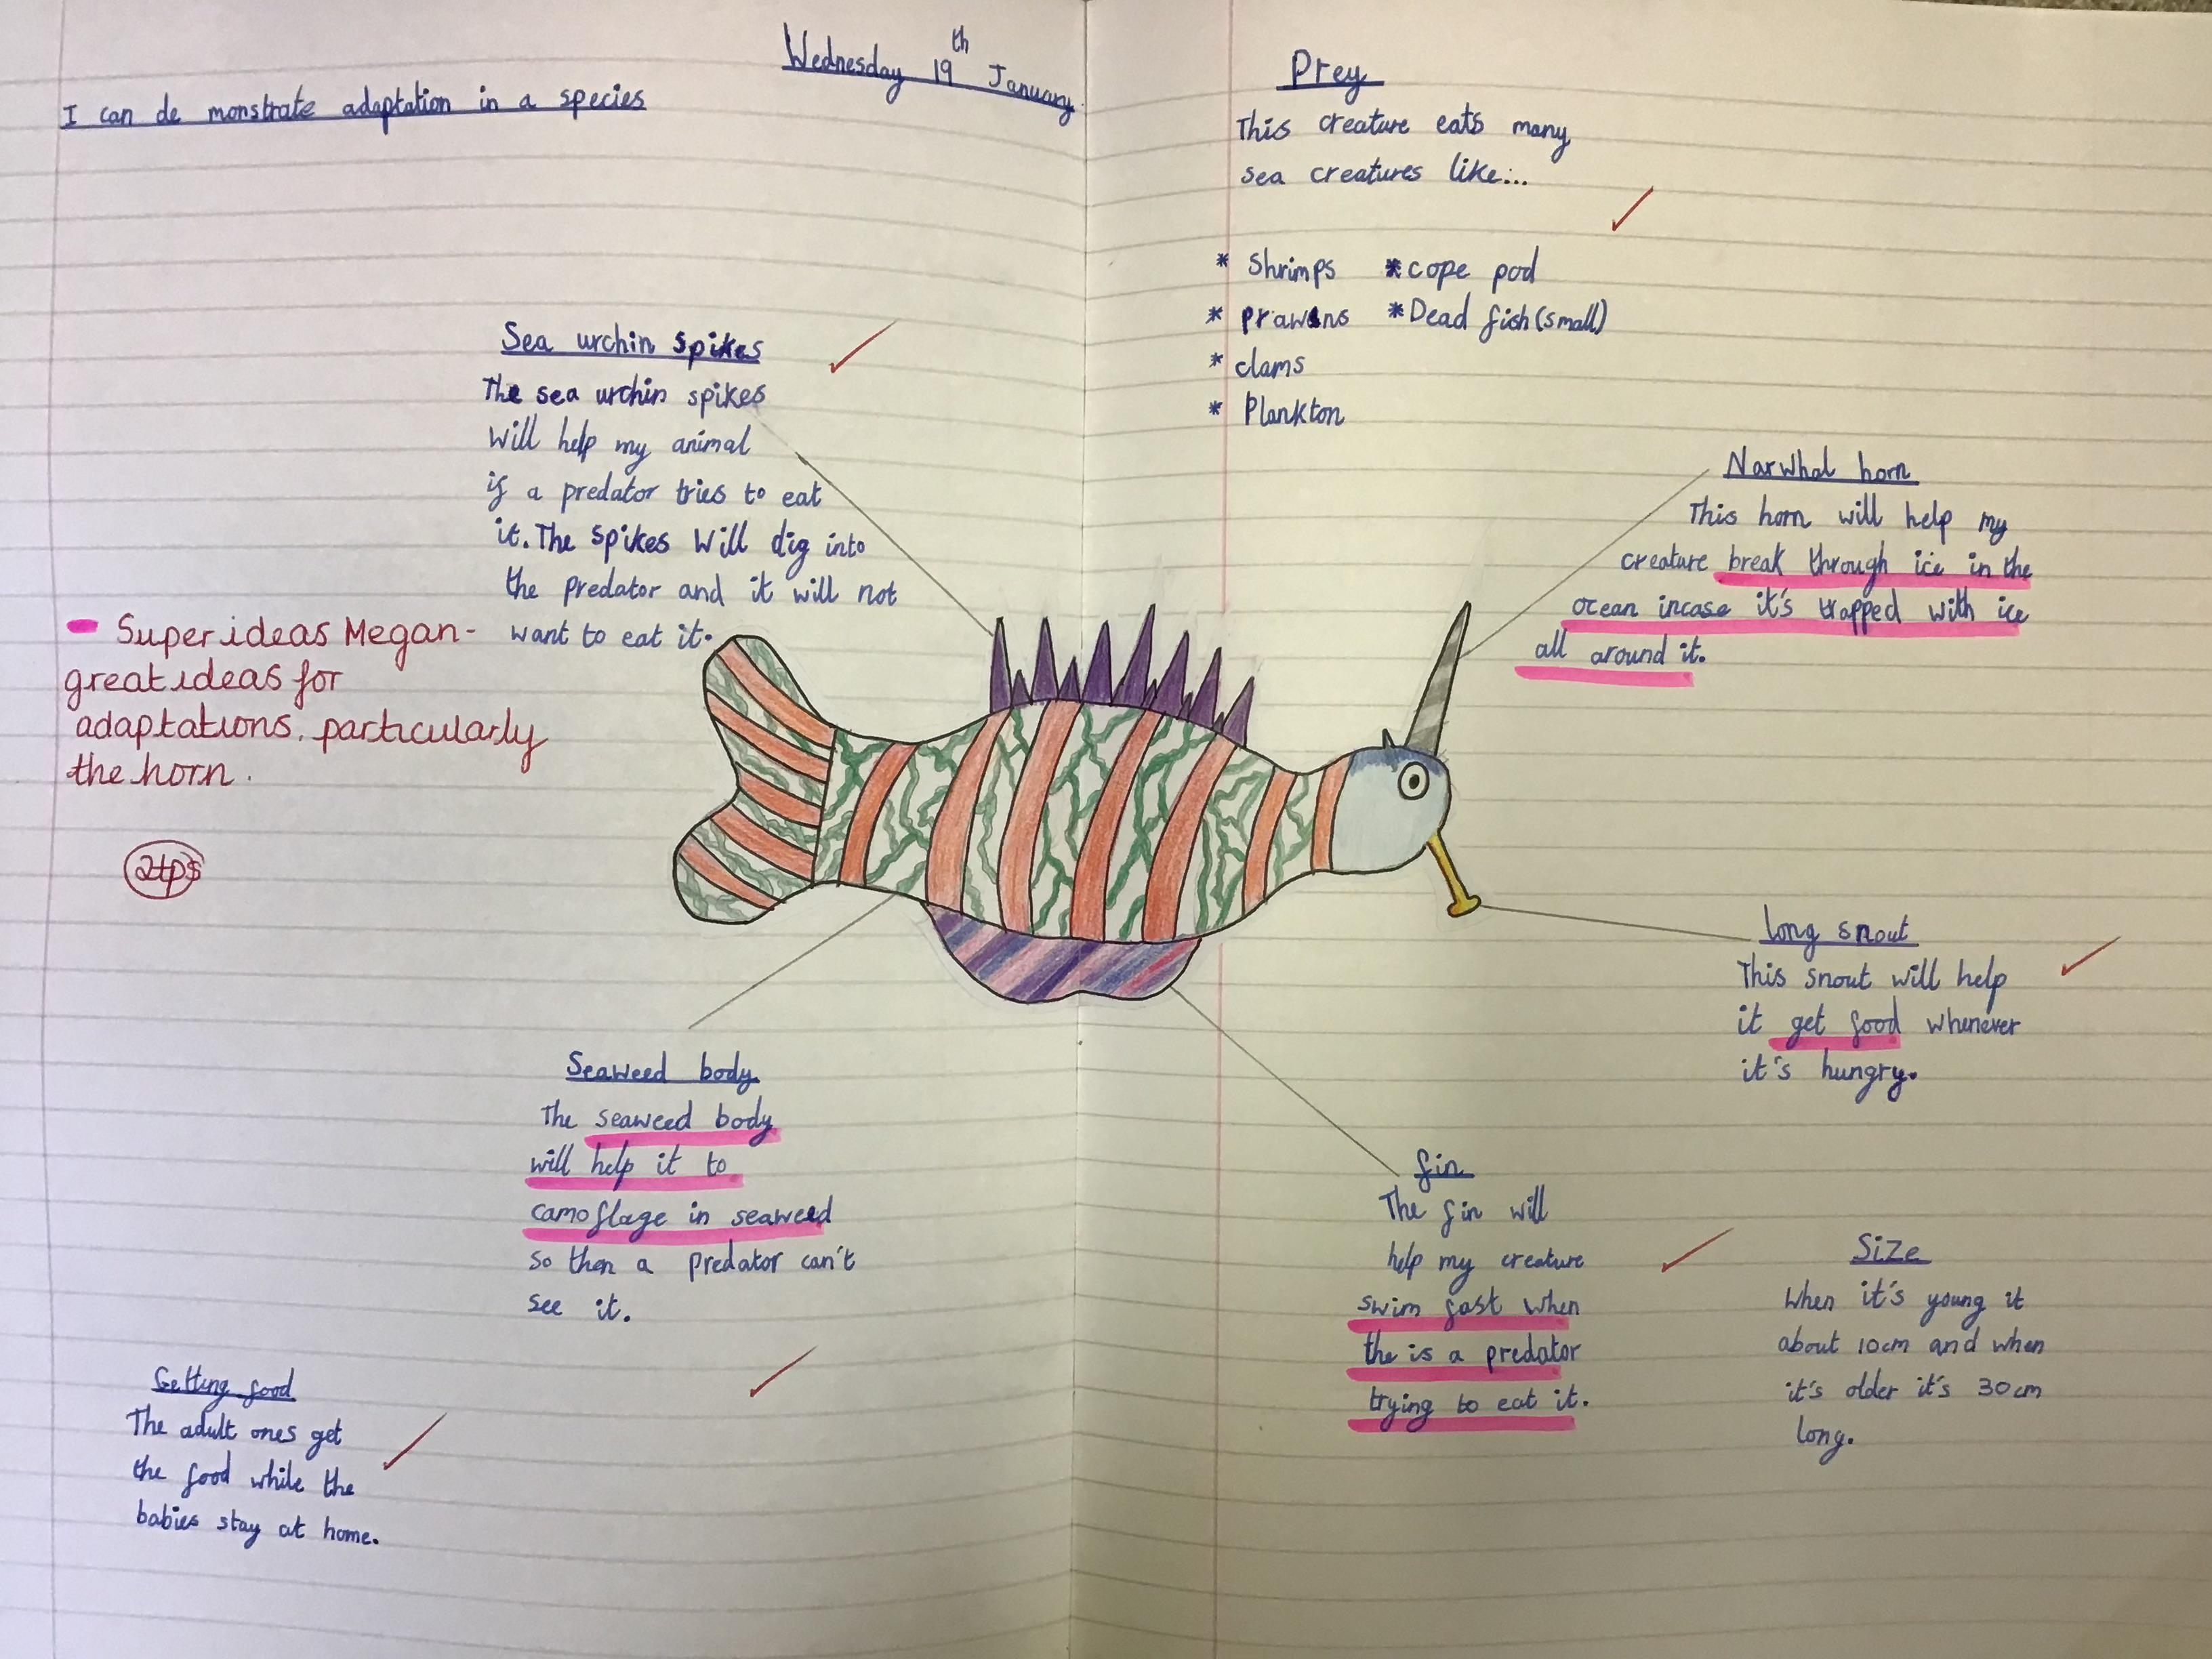 Wednesday 19th January
I can de monstrate adaptation in a species
Sea urchin spikes
The sea urchin spikes
will help my animal
if a predator tries to eat
it. The spikes will dig into
the predator and it will not
want to eat it.
- Super ideas Megan -
great ideas for
adaptations, particularly
the horn.
2tps
Seaweed body
The seaweed body
will help it to
camoflage in seaweed
so then a predator can't
see it.
Getting food
The adult ones get
the food while the
babies stay at home.
Prey
This creature eats many
sea creatures like...
* Shrimps * cope pod
* prawns * Dead fish (small)
* clams
* Plankton
Narwhal horn
This horn will help my
creature break through ice in the
ocean incase it's trapped with ice
all around it.
long snout
This snout will help
it get food whenever
it's hungry.
fin
The fin will
help my creature
swim fast when
the is a predator
trying to eat it.
Size
When it's young it
about 10cm and when
it's older it's 30cm
long.